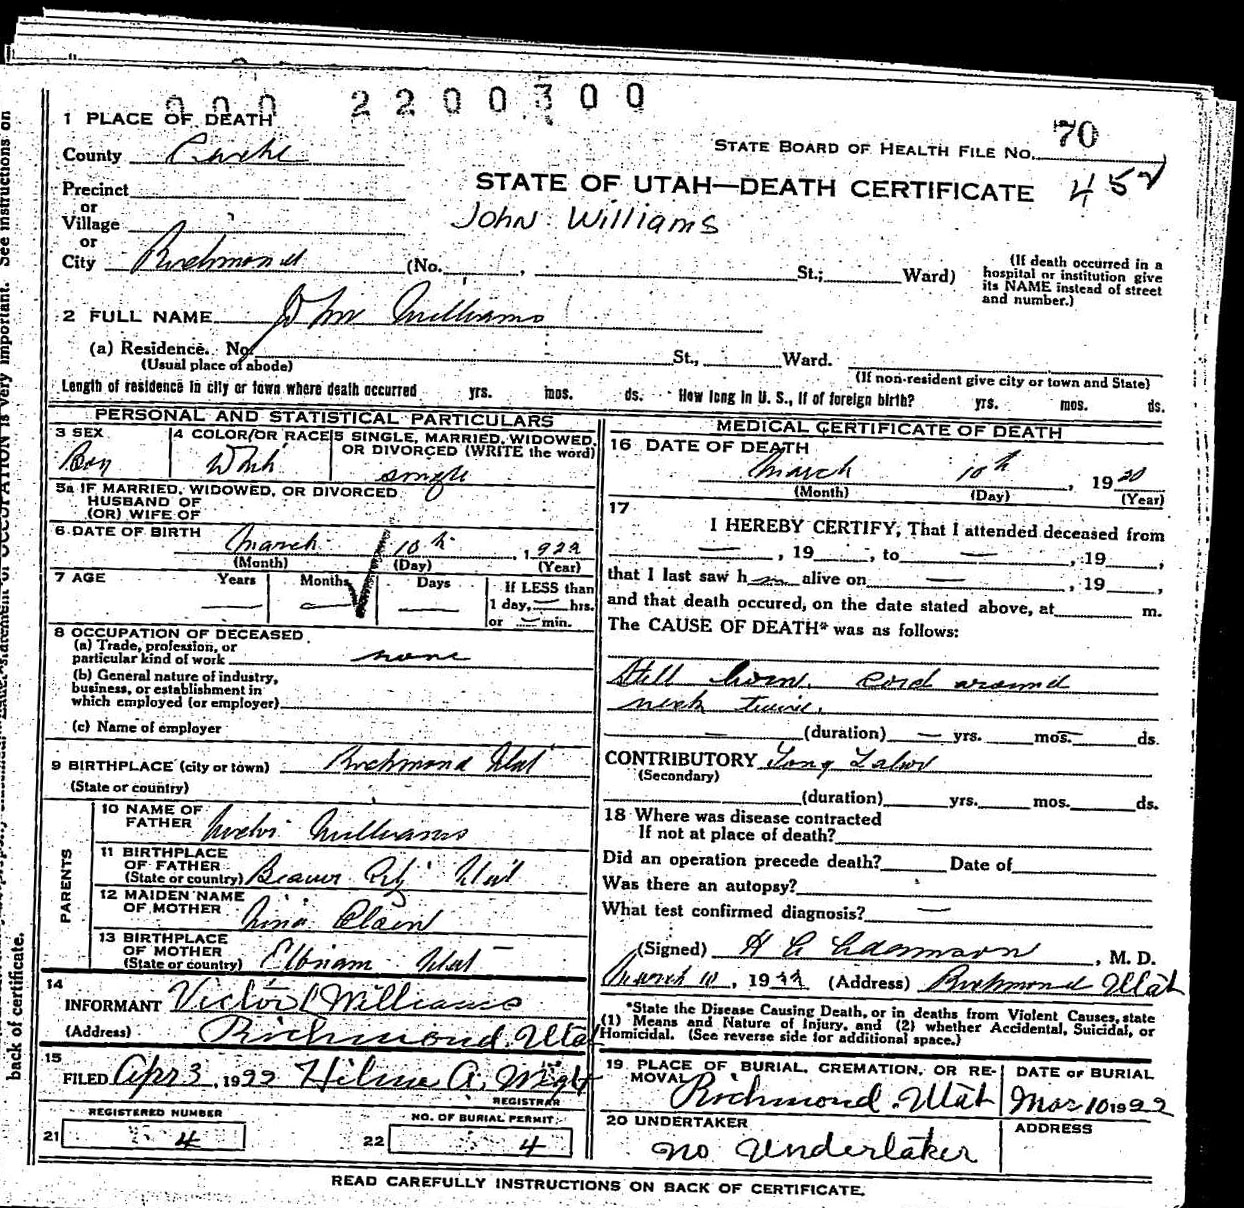 000 2200300
1 PLACE OF DEATH
70
STATE BOARD OF HEALTH FILE NO.
County Cache
STATE OF UTAH—DEATH CERTIFICATE 452
Precinct
John Williams
or
Village
or
City Richmond (No. , St.; Ward)
(If death occurred in a
hospital or institution give
its NAME instead of street
and number.)
2 FULL NAME John Williams
(a) Residence. No. St., Ward.
(Usual place of abode) (If non-resident give city or town and State)
Length of residence in city or town where death occurred yrs. mos. ds. How long in U. S., if of foreign birth? yrs. mos. ds.
PERSONAL AND STATISTICAL PARTICULARS
3 SEX 4 COLOR OR RACE 5 SINGLE, MARRIED, WIDOWED,
OR DIVORCED (WRITE the word)
Boy White single
5a IF MARRIED, WIDOWED, OR DIVORCED
HUSBAND OF
(OR) WIFE OF
6 DATE OF BIRTH March 10th, 1922
(Month) (Day) (Year)
7 AGE Years Months Days If LESS than
1 day, — hrs.
or — min.
8 OCCUPATION OF DECEASED
(a) Trade, profession, or
particular kind of work none
(b) General nature of industry,
business, or establishment in
which employed (or employer)
(c) Name of employer
9 BIRTHPLACE (city or town) Richmond Utah
(State or country)
PARENTS
10 NAME OF
FATHER Williams
11 BIRTHPLACE
OF FATHER
(State or country) Beaver Utah
12 MAIDEN NAME
OF MOTHER Nina
13 BIRTHPLACE
OF MOTHER
(State or country) Utah
14
INFORMANT Victor Williams
(Address) Richmond, Utah
15
FILED Apr 3, 1922 A.
REGISTRAR
REGISTERED NUMBER NO. OF BURIAL PERMIT
21 4 22 4
MEDICAL CERTIFICATE OF DEATH
16 DATE OF DEATH
March 10th, 1920
(Month) (Day) (Year)
17
I HEREBY CERTIFY, That I attended deceased from
— , 19 , to — , 19 ,
that I last saw h alive on — , 19 ,
and that death occured, on the date stated above, at m.
The CAUSE OF DEATH* was as follows:
Still born. cord around
neck twice.
— (duration) — yrs. mos. — ds.
CONTRIBUTORY Long Labor
(Secondary)
(duration) yrs. mos. ds.
18 Where was disease contracted
If not at place of death?
Did an operation precede death? Date of
Was there an autopsy?
What test confirmed diagnosis? —
(Signed) , M. D.
March 10, 1922 (Address) Richmond Utah
*State the Disease Causing Death, or in deaths from Violent Causes, state
(1) Means and Nature of Injury, and (2) whether Accidental, Suicidal, or
Homicidal. (See reverse side for additional space.)
19 PLACE OF BURIAL, CREMATION, OR RE-
MOVAL Richmond, Utah
DATE OF BURIAL
Mar 10 1922
20 UNDERTAKER
no Undertaker
ADDRESS
READ CAREFULLY INSTRUCTIONS ON BACK OF CERTIFICATE.
OCCUPATION is very important. See instructions on
back of certificate.